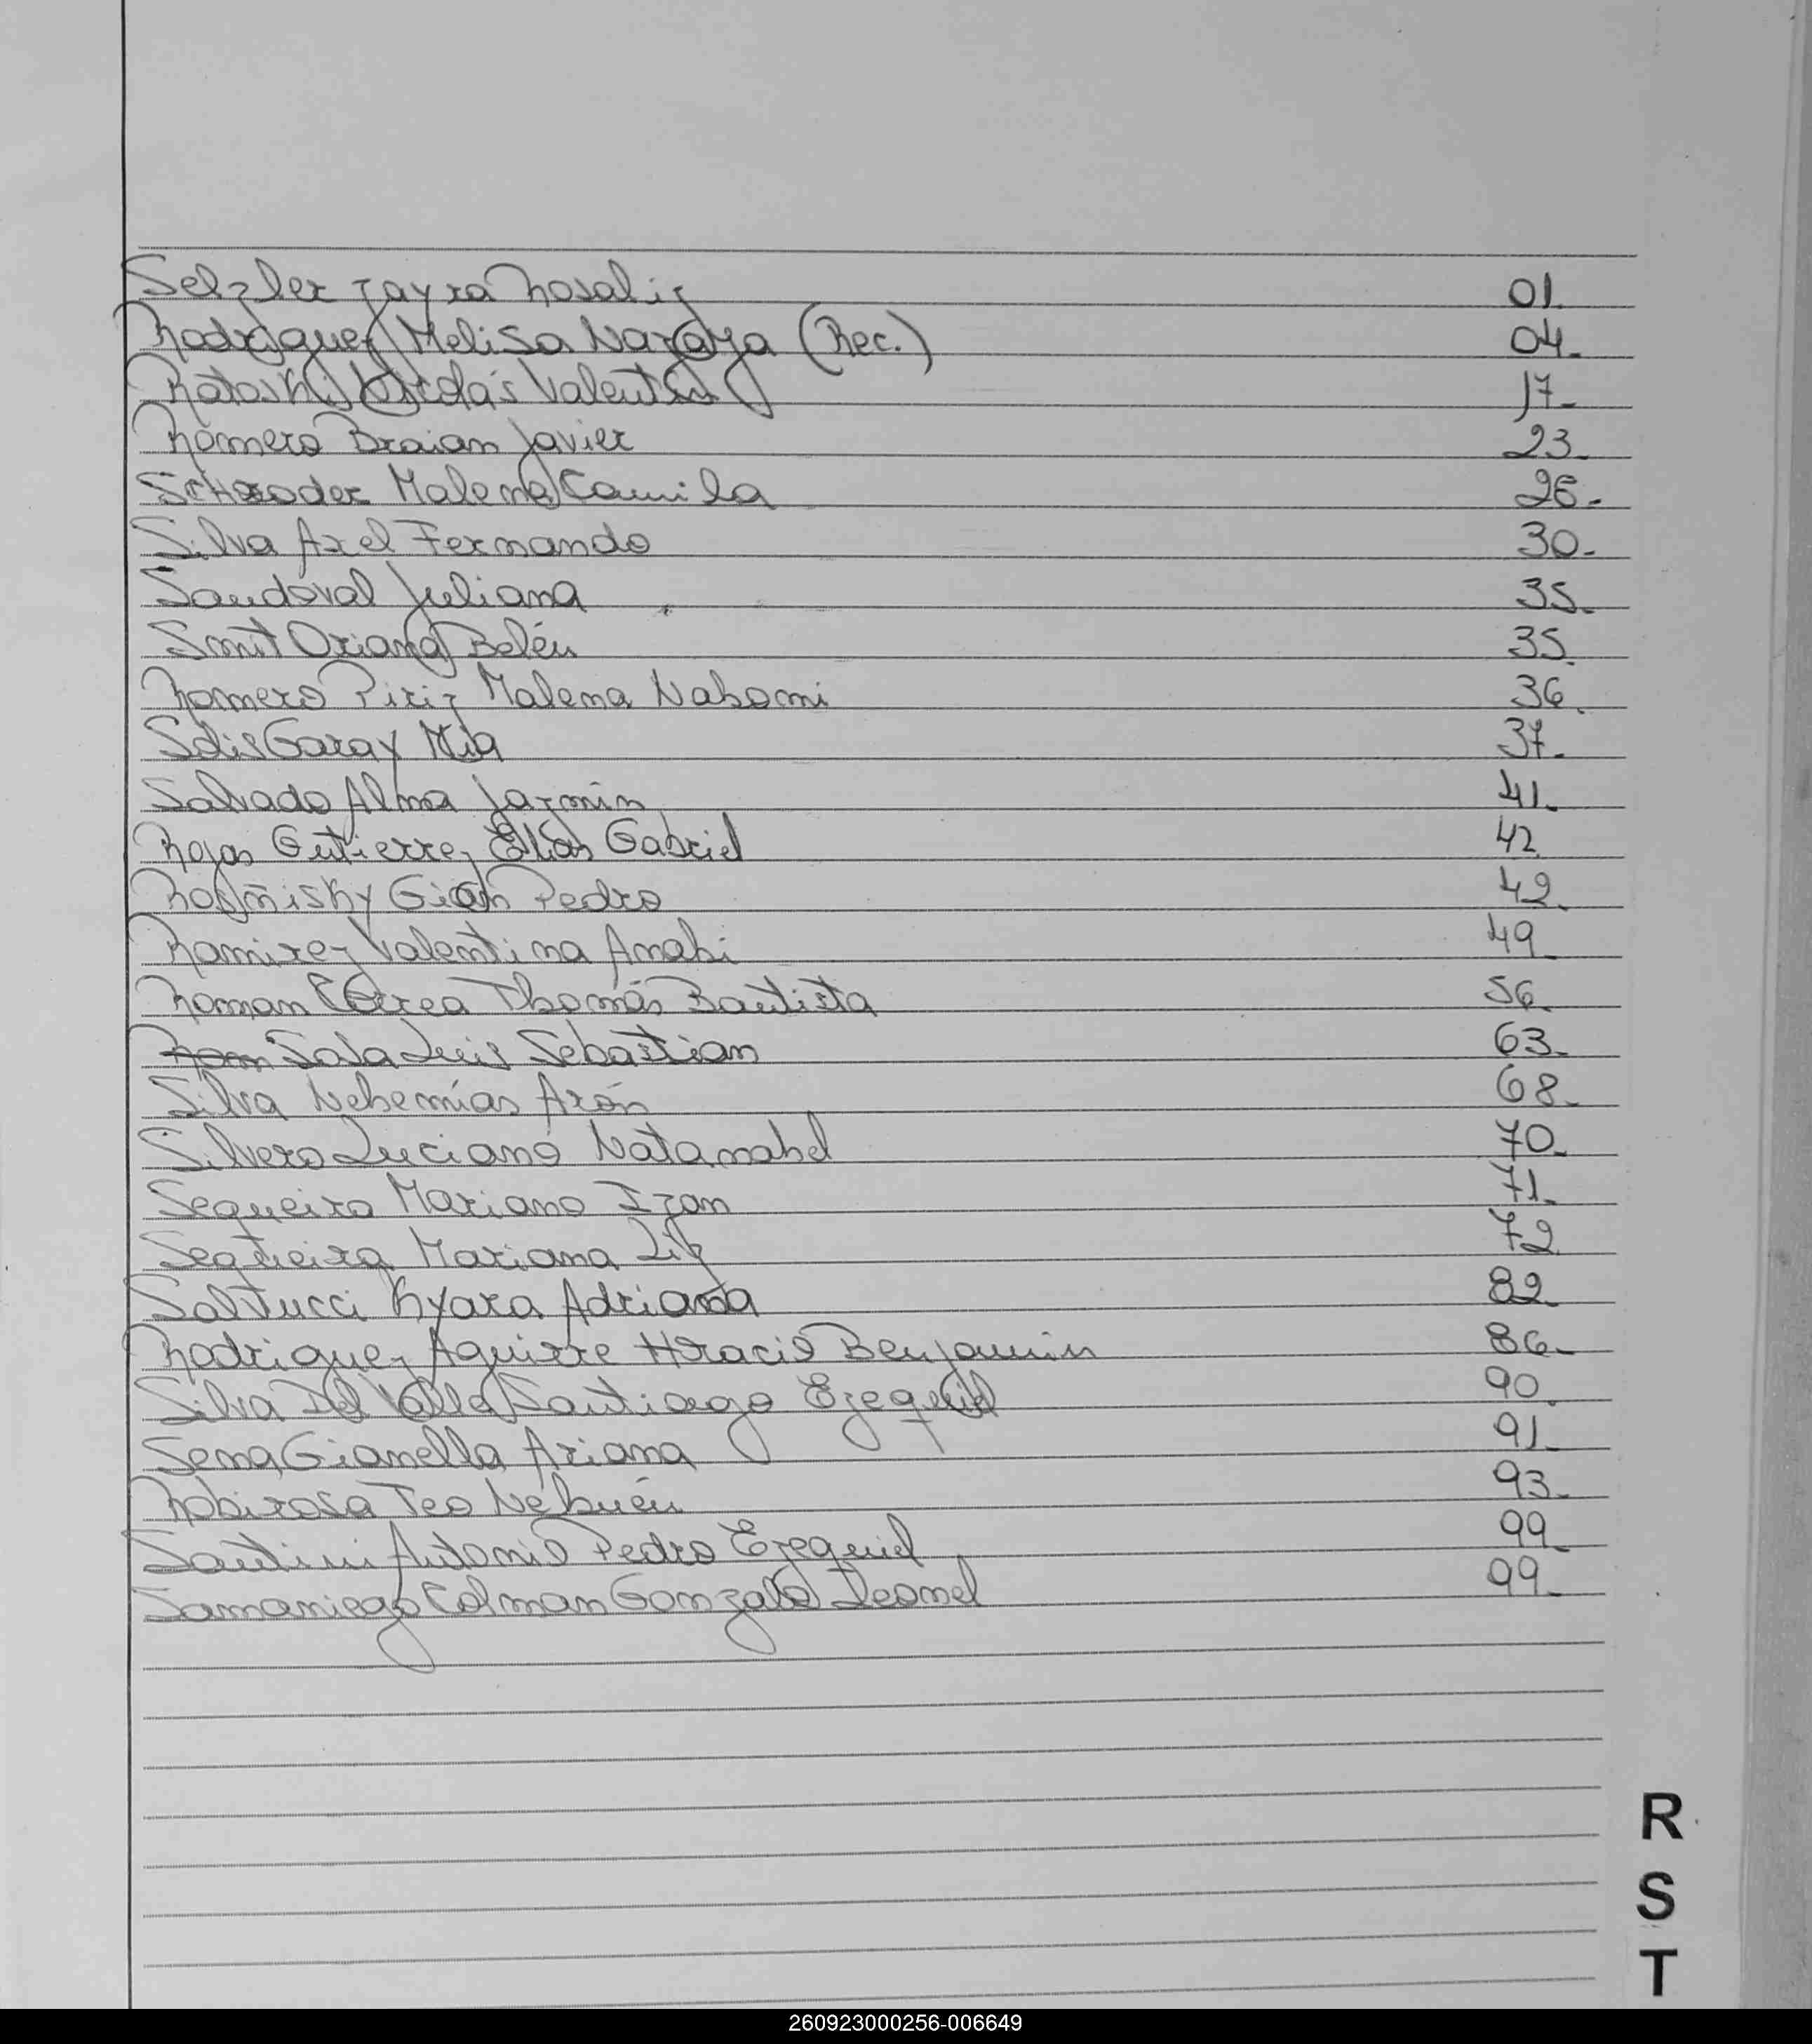 Selzler Zayra Rosaliz 01.
Rodriguez Melisa Naraya (Rec.) 04.
Valentín 17.
Romero Braian Javier 23.
Schroder Malena Camila 26.
Silva Axel Fernando 30.
Sandoval Juliana 35.
Smit Oriana Belén 35.
Romero Piriz Malena Nahomi 36.
Solis Garay Mia 37.
Salvado Alma Jazmín 41.
Rojas Gutierrez Elías Gabriel 42.
Gian Pedro 42.
Ramirez Valentina Anahi 49.
Roman Correa Thomás Bautista 56.
Rom Sosa Luis Sebastian 63.
Silva Nehemías Arón 68.
Silvero Luciano Natanahel 70.
Sequeira Mariano Izan 71.
Sequeira Mariana Liz 72.
Santucci Kyara Adriana 82.
Rodriguez Aguirre Horacio Benjamin 86.
Silva Del Valle Santiago Ezequiel 90.
Sena Gianella Ariana 91.
Robirosa Teo Nehuén 93.
Santini Antonio Pedro Ezequiel 99.
Samaniego Colman Gonzalo Leonel 99.
R
S
T
260923000256-006649